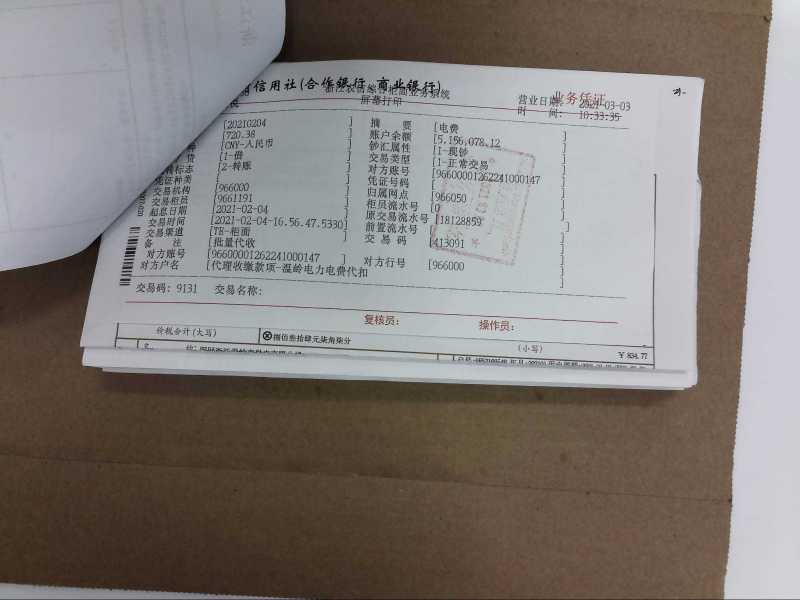 信用社(合作银行、商业银行)
业务凭证
屏幕打印
营业日期: 2021-03-03
时 间: 10:33:35
[20210204 ] 摘 要 [电费 ]
[720.38 ] 账户余额 [5,156,078.12 ]
货 [CNY-人民币 ] 钞汇属性 [1-现钞 ]
[1-借 ] 交易类型 [1-正常交易 ]
标志 [2-转账 ] 对方账号 [966000012622410001​47 ]
凭证种类 [ ] 凭证号码 [ ]
交易机构 [966000 ] 归属网点 [966050 ]
交易柜员 [9661191 ] 柜员流水号 [0 ]
起息日期 [2021-02-04 ] 原交易流水号 [18128859 ]
交易时间 [2021-02-04-16.56.47.5330] 前置流水号 [ ]
交易渠道 [TE-柜面 ] 交 易 码 [413091 ]
备 注 [批量代收 ]
对方账号 [96600001262241000147 ] 对方行号 [966000 ]
对方户名 [代理收缴款项-温岭电力电费代扣 ]
交易码: 9131 交易名称:
复核员: 操作员:
价税合计(大写) ⊗捌佰叁拾肆元柒角柒分 (小写) ¥ 834.77